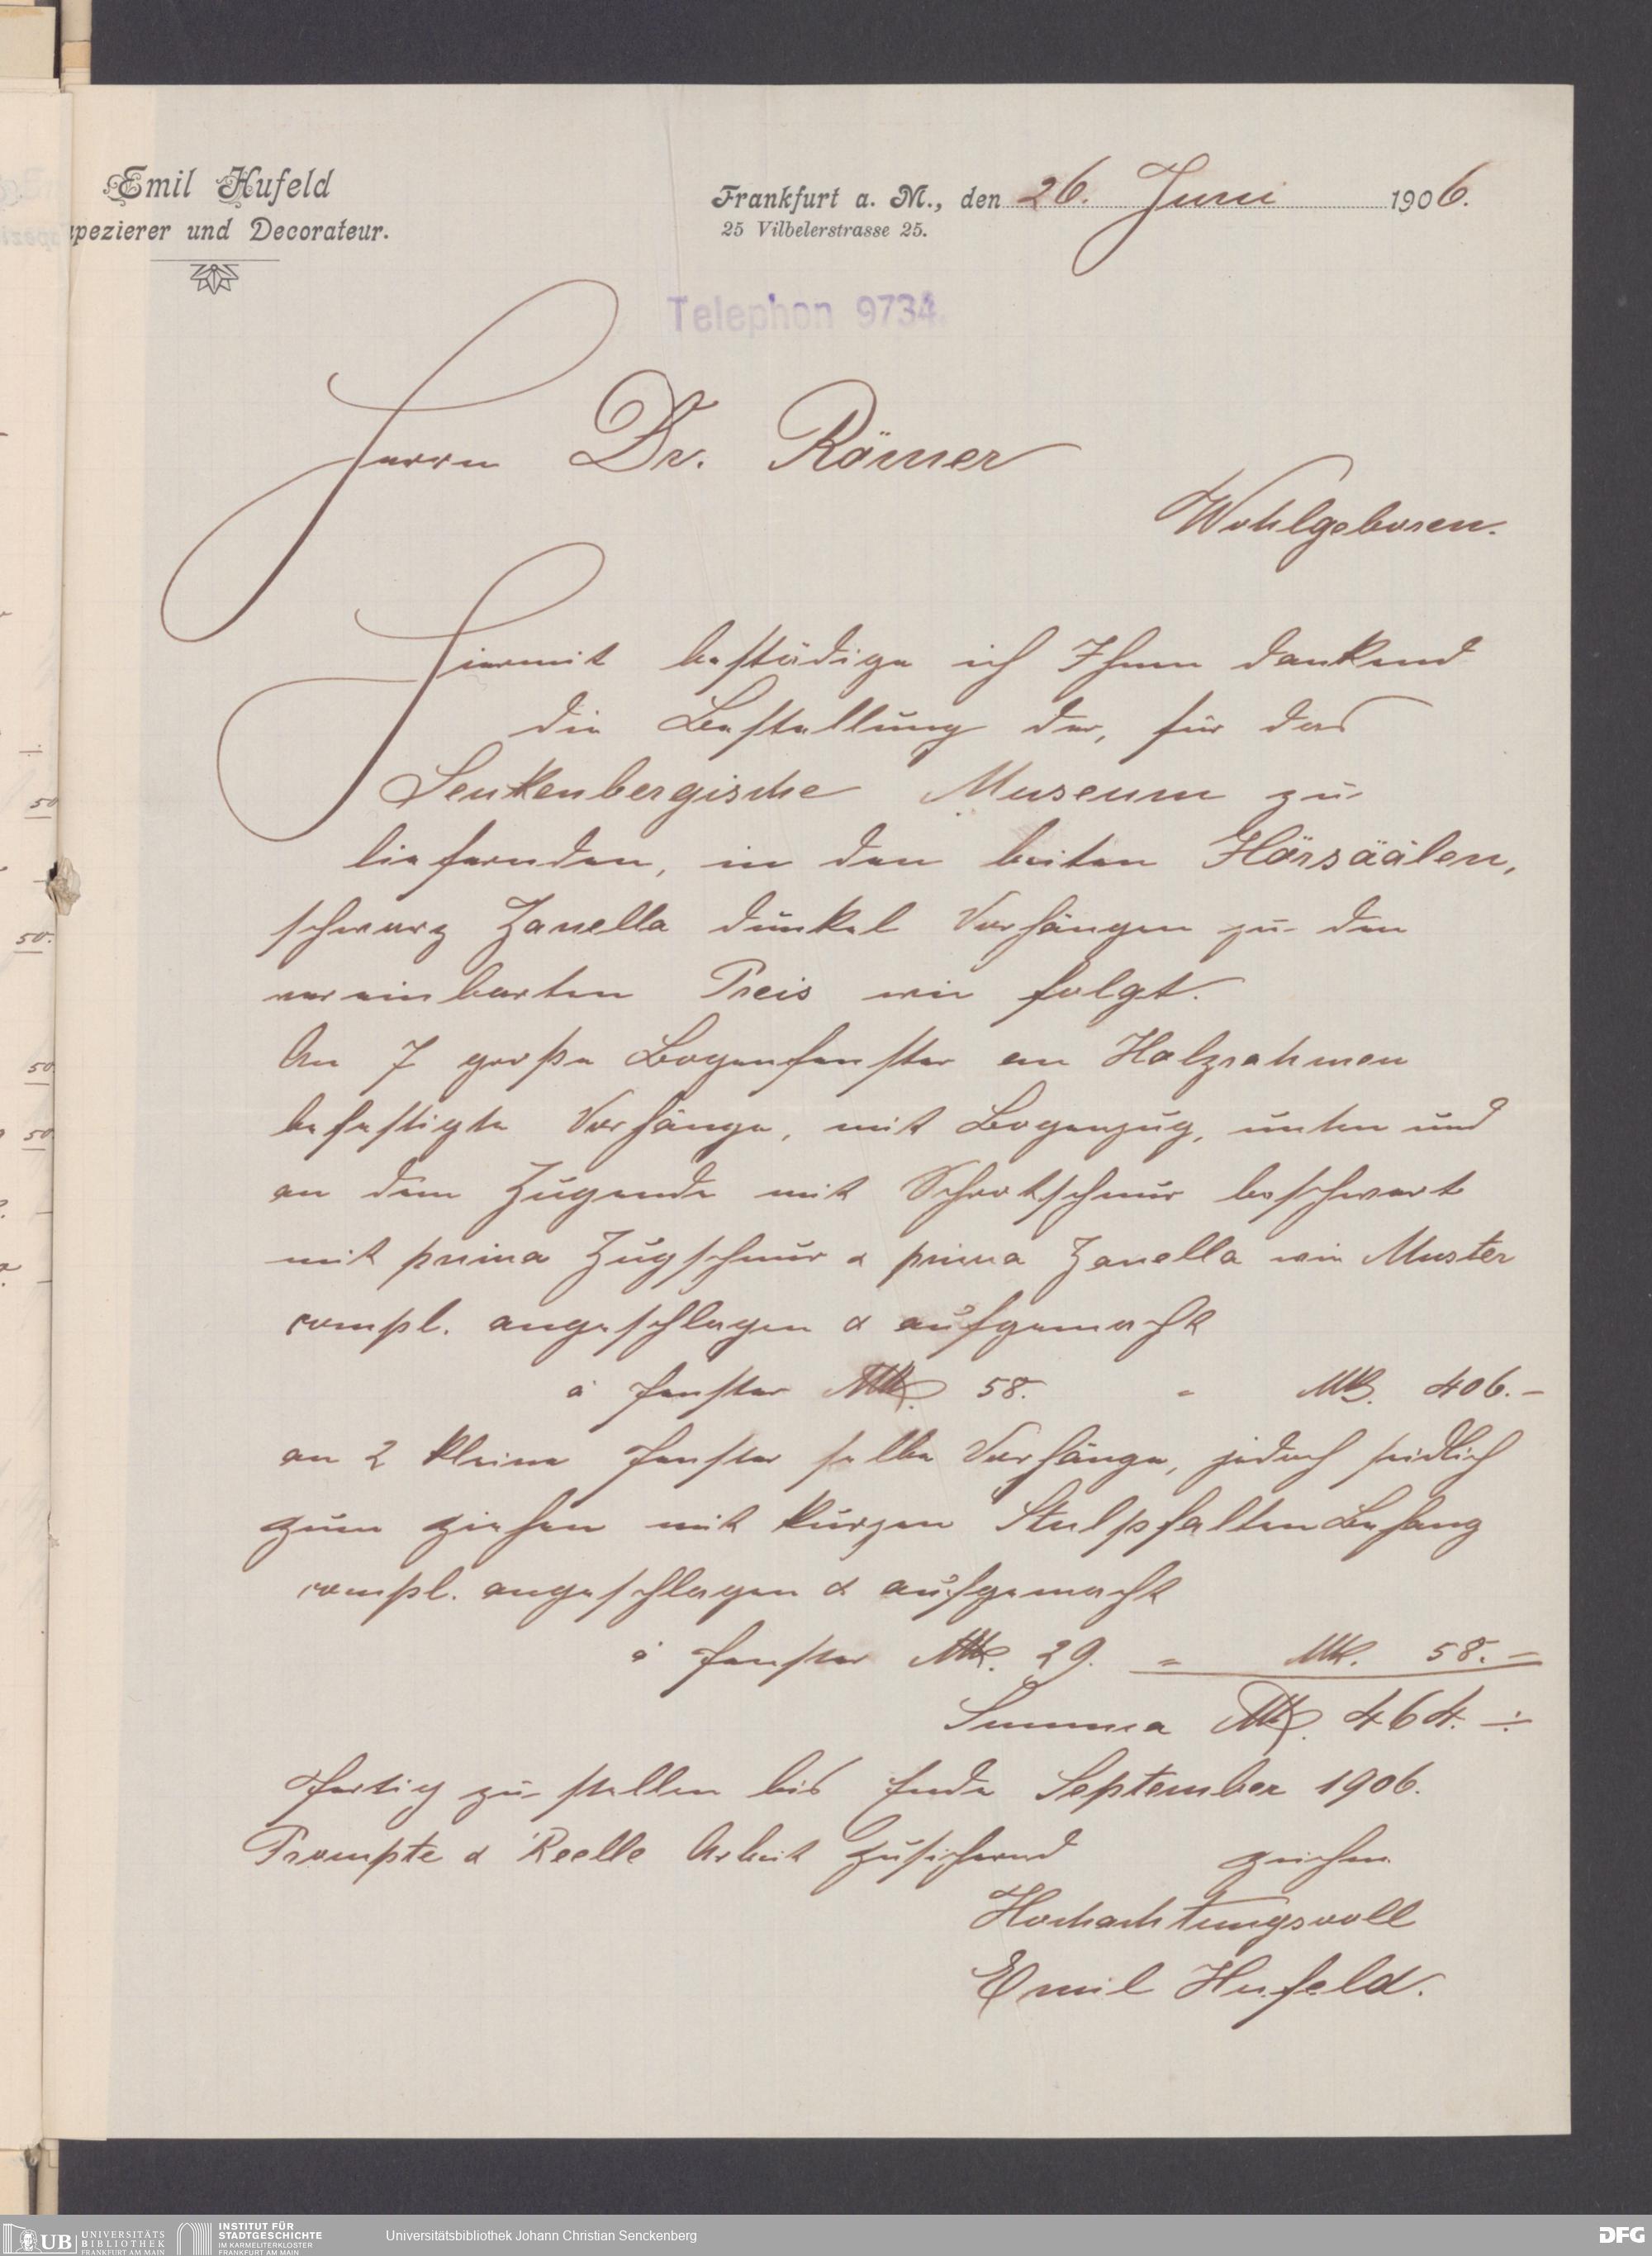 Emil Hufeld
pezierer und Decorateur.
Frankfurt a. M., den 26. Juni 1906.
25 Vilbelerstrasse 25.
Telephon 9734.
Herrn Dr. Römer
Wohlgeboren.
Hiermit bestädige ich Ihnen dankend
die Bestellung der, für das
Senkenbergische Museum zu
liefernden, in den beiten Hörsäälen,
schwarz Zanella dunkel Vorhängen zu den
vereinbarten Preis wie folgt.
An 7 große Bogenfenster an Holzrahmen
befestigte Vorhänge, mit Bogenzug, unten und
an dem Zugende mit Schrotschnur beschwert
mit prima Zugschnur & prima Zanella wie Muster
compl. angeschlagen & aufgemacht
à Fenster Mk. 58. = Mk. 406.–
an 2 kleine Fenster selbe Vorhänge, jedoch seidlich
zum ziehen mit kurzen Stulpfalten Behang
compl. angeschlagen & aufgemacht
à Fenster Mk. 29. = Mk. 58.–
Summa Mk. 464. ÷
Fertig zu stellen bis Ende September 1906.
Prompte & Reelle Arbeit zusichernd zeichne
Hochachtungsvoll
Emil Hufeld.
50
50.
50
50
UB UNIVERSITÄTS
BIBLIOTHEK
FRANKFURT AM MAIN
INSTITUT FÜR
STADTGESCHICHTE
IM KARMELITERKLOSTER
FRANKFURT AM MAIN
Universitätsbibliothek Johann Christian Senckenberg
DFG